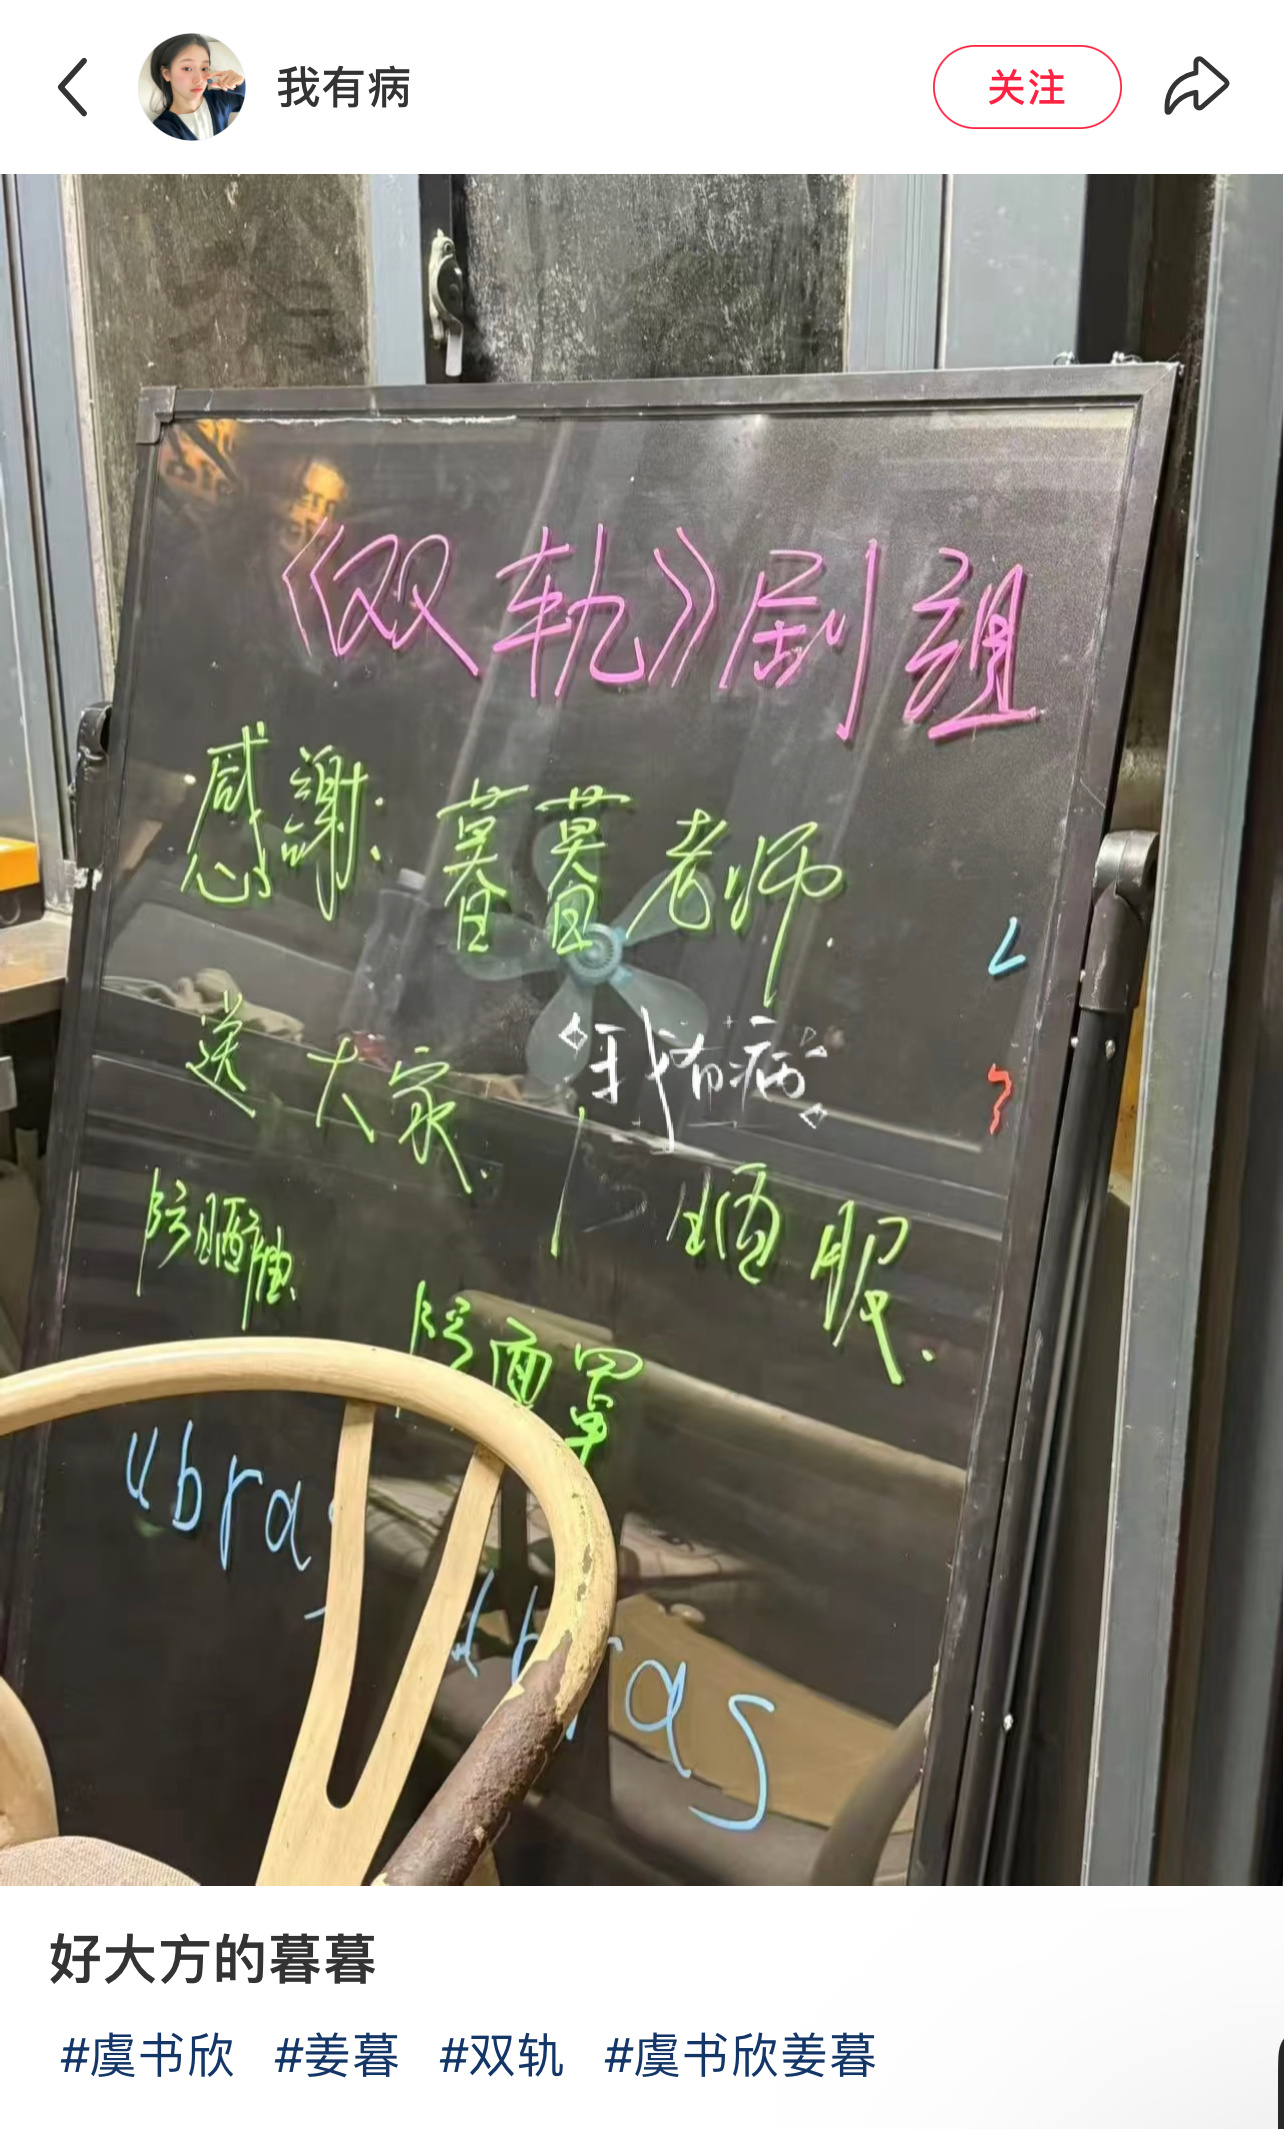 我有病
关注
《双轨》剧組
感謝：暮暮老师
送大家
我有病
晒服
防晒
面罩
ubras
ras
好大方的暮暮
#虞书欣 #姜暮 #双轨 #虞书欣姜暮